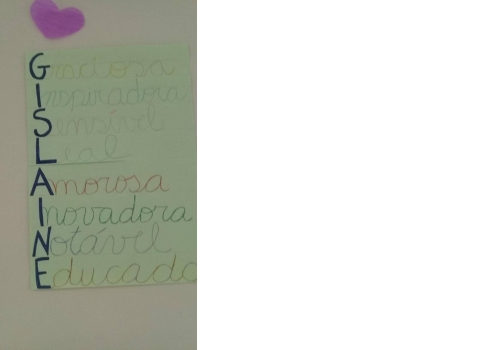 Graciosa
Inspiradora
Sensível
Leal
Amorosa
Inovadora
Notável
Educada